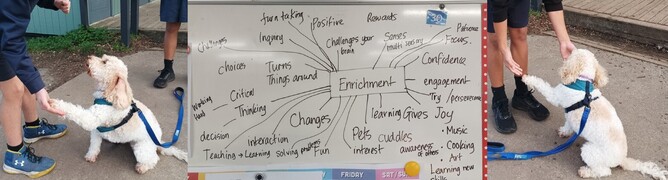 turn taking
Positive
Rewards
30
Patience
challenges
Inquiry
Challenges your
brain
Games
multi sensory
Focus.
choices
Turns
Things around
Confidence
Enrichment
engagement
Critical
Thinking
Try / persevere
Working
Hard
Changes
learning Gives Joy
decision
Interaction
Pets
cuddles
• Music
• Cooking
Teaching → Learning
solving problems
Fun
interest
awareness
of others
Art
Learning new
skills
FRIDAY
SAT/SU